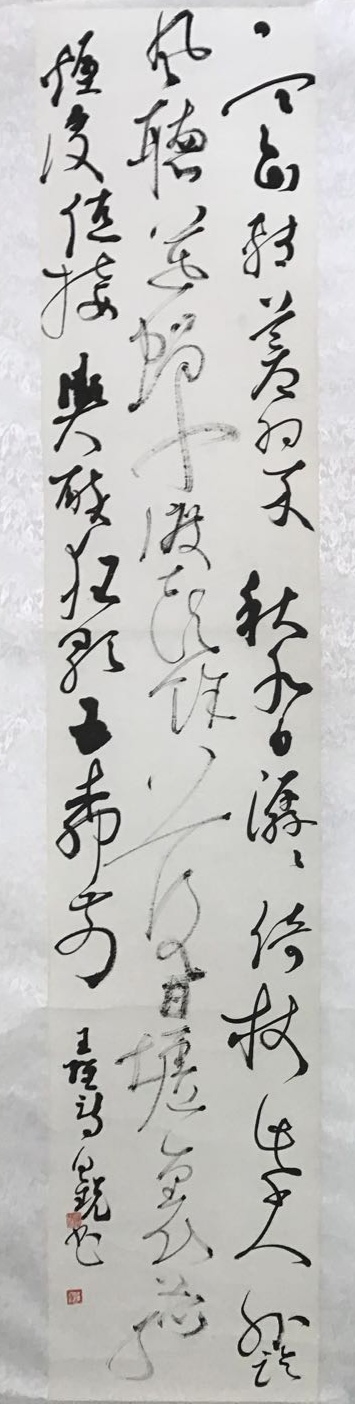 寒山轉蒼翠秋水日潺倚杖柴門外臨
風聽暮蟬渡頭餘落日墟里上孤
煙復值接輿醉狂歌五柳前
王維詩 書